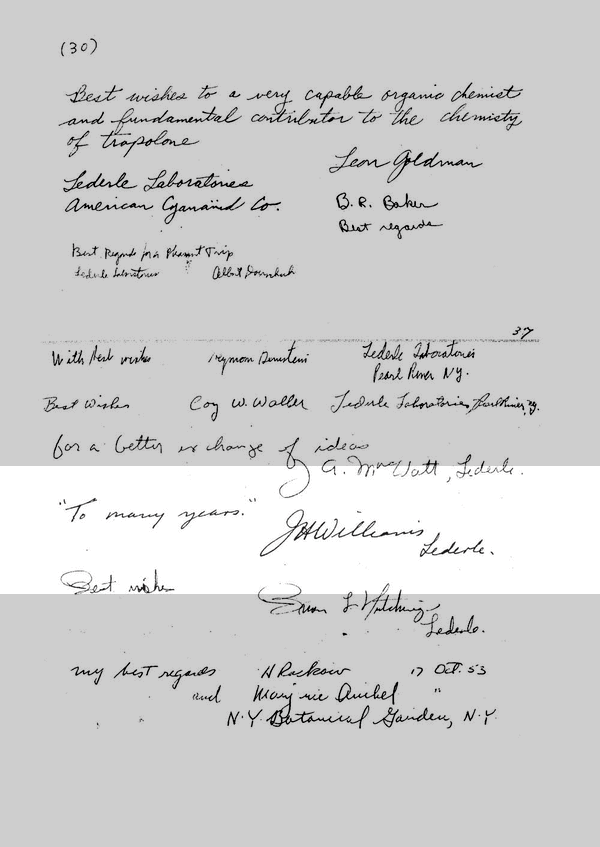 (30)
Best wishes to a very capable organic chemist
and fundamental contributor to the chemisty
of tropolone
Leon Goldman
Lederle Laboratories
American Cyanamid Co.
B. R. Baker
Best regards
Best Regards for a Pleasant Trip
Lederle Laboratories Albert
37
With best wishes Seymour Bernstein Lederle Laboratories
Pearl River N.Y.
Best Wishes Coy W. Waller Lederle Laboratories, Pearl River, N.Y.
for a better exchange of ideas
G. , Lederle.
"To many years."
JHWilliams
Lederle.
Best wishes
L Hutchings
Lederle.
my best regards H Rackow 17 Oct. 53
and Marjorie Anchel "
N.Y. Botanical Garden, N.Y.